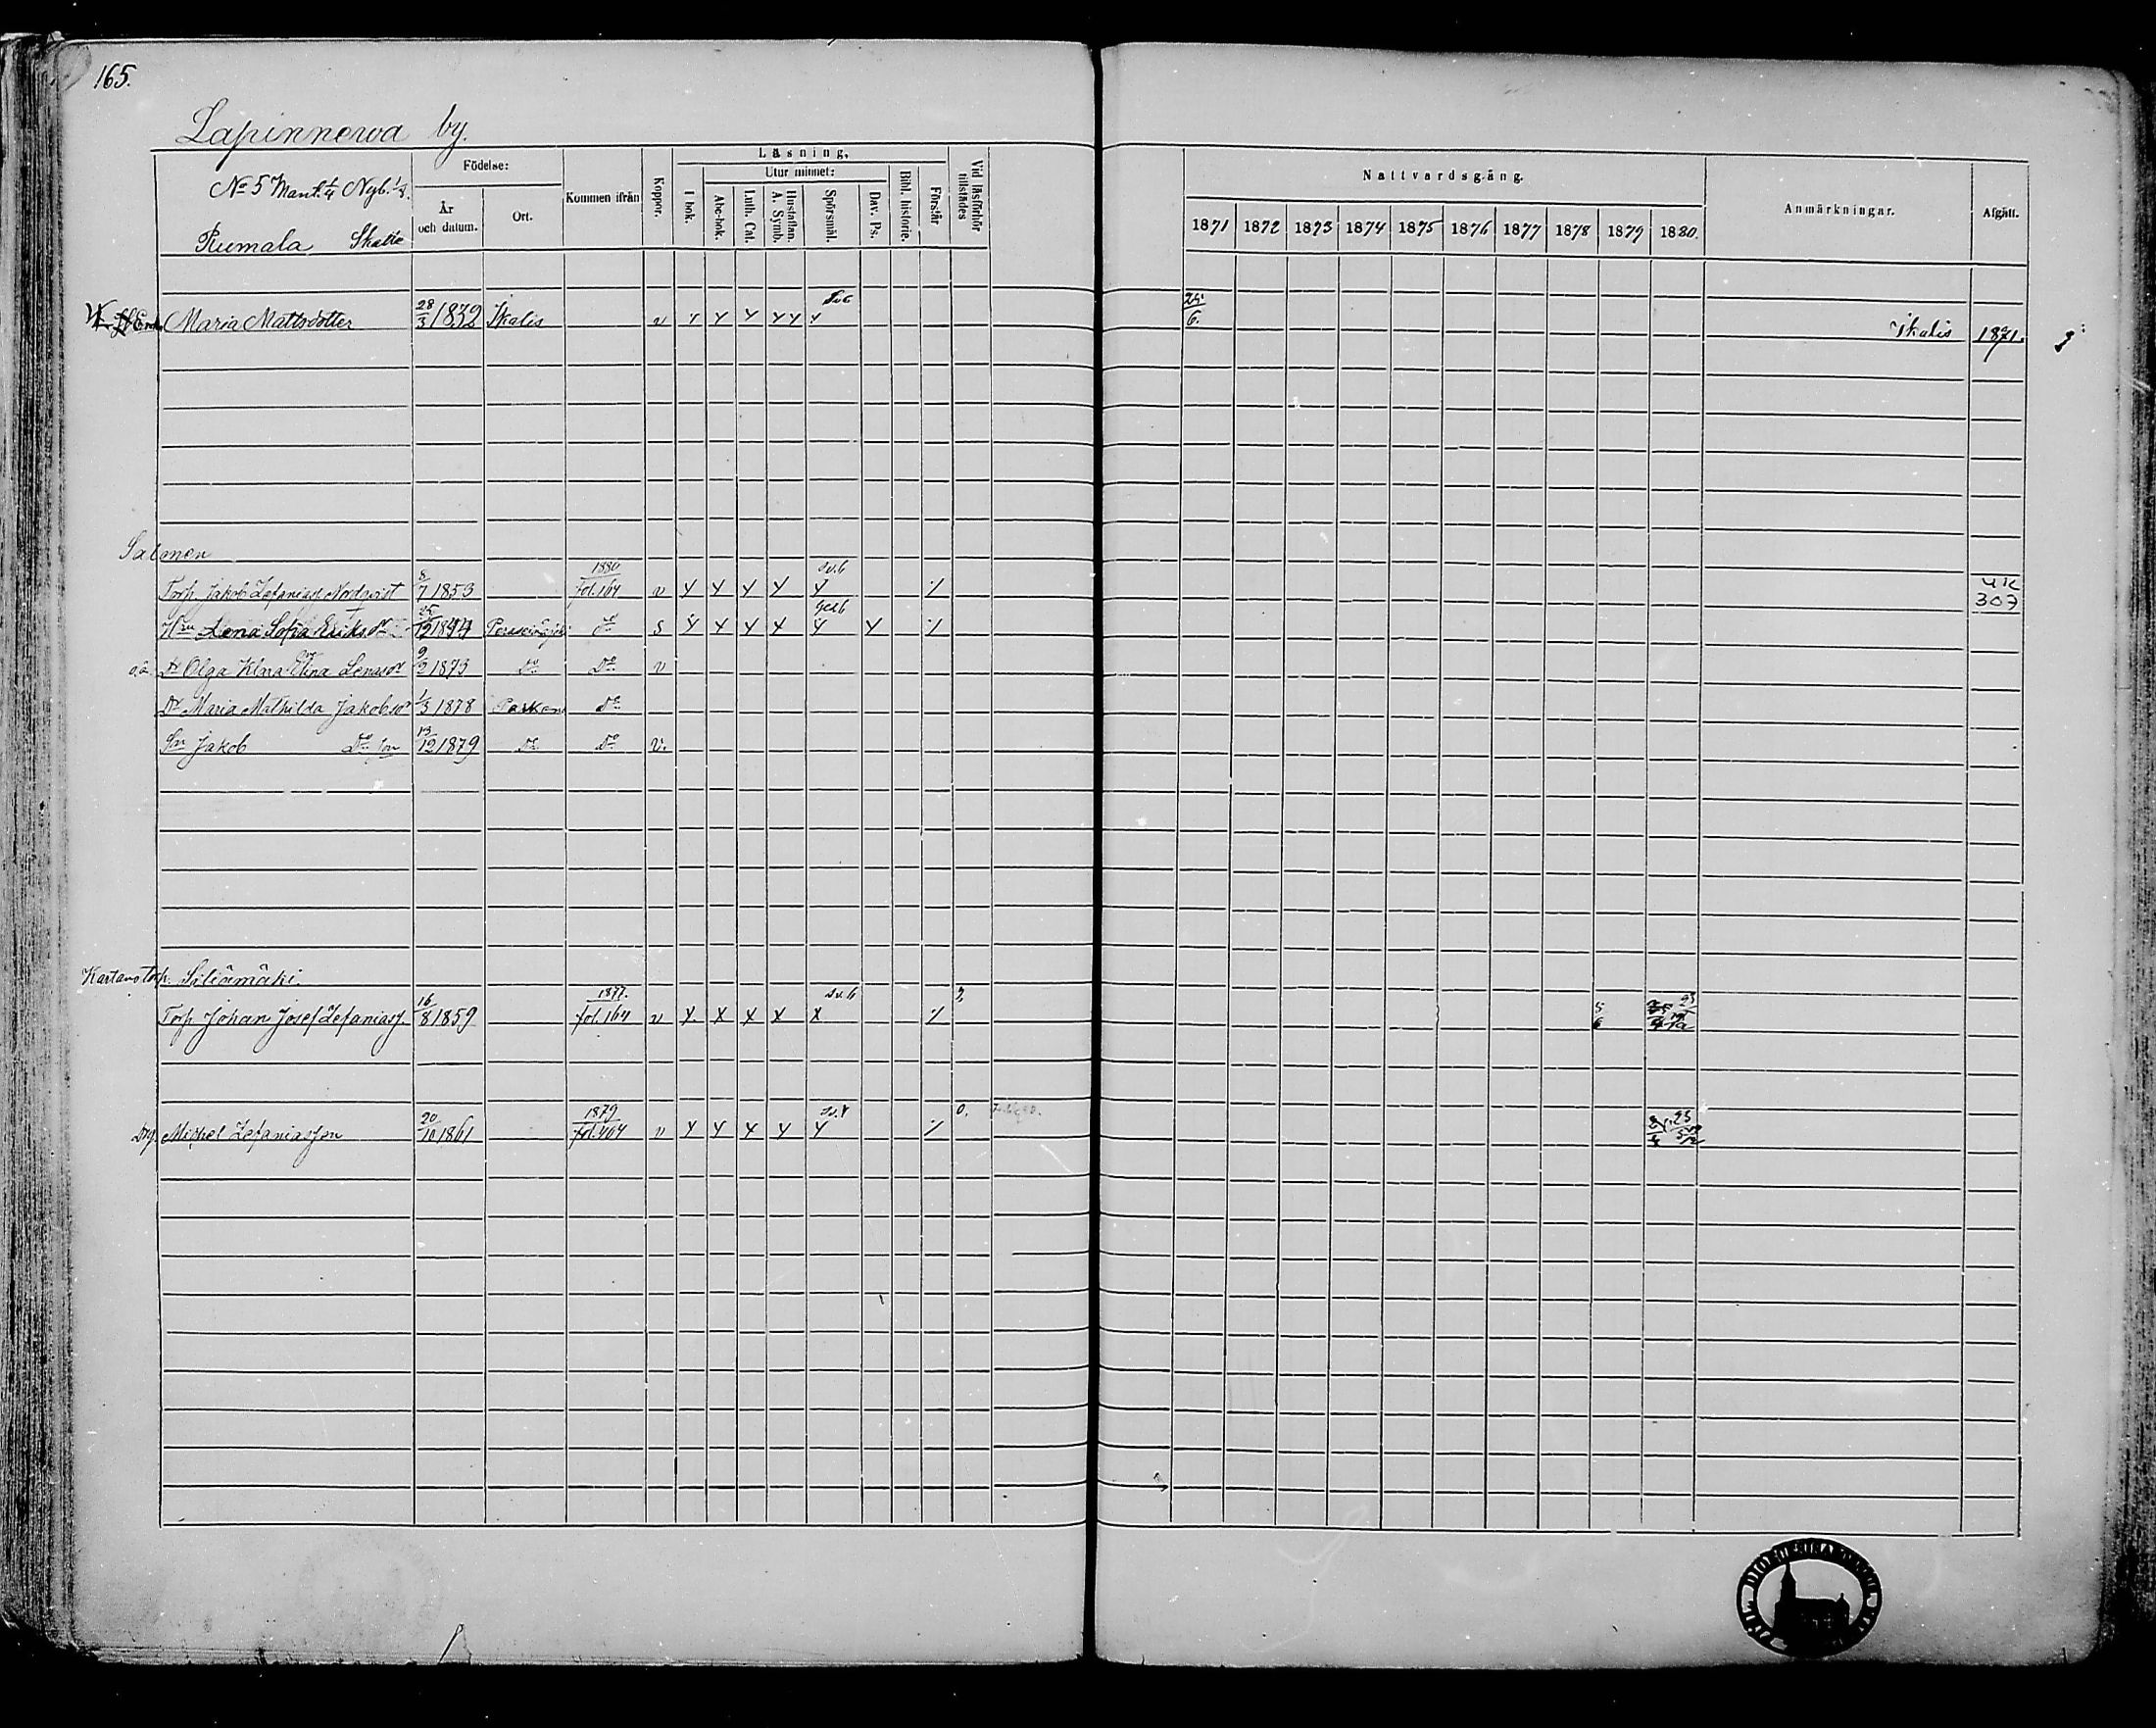 165.
Lapinnewa by.
No 5 Mant. 1/4 Nyb. 1/8.
Rumala Skatte
Födelse:
År och datum.
Ort.
Kommen ifrån
Koppor.
Läsning.
Utur minnet:
I bok.
Abc-bok.
Luth. Cat.
Hustaflan. A. Symb.
Spörsmål.
Dav. Ps.
Bibl. historie.
Förstår
Vid läsförhör tillstädes
Nattvardsgång.
1871 1872 1873 1874 1875 1876 1877 1878 1879 1880.
Anmärkningar.
Afgått.
Maria Mattsdotter 28/3 1832 Ikalis v 25/6. Ikalis 1871.
Salmen
Torp. Jakob Zefaniass. Nordqvist 8/7 1853 1880 fol. 164 v Y Y Y Y Y ٪ 307
Hu Lena Sofia Eriksdr 1844 Do S Y Y Y X Y Y ٪
o.ä. Dr Olga Klara Elina Lenasdr 9/2 1873 Do Do v
Dr Maria Mathilda Jakobsdr 1/3 1878 Parkano Do
Sn Jakob Do son 13/12 1879 Do Do v.
Kartano torp. Siliämäki.
Torp Johan Josef Zefaniass. 16/8 1859 1877. fol. 164 v X X X X X ٪ 5/6
Drg. Michel Zefaniasson 20/10 1861 1879 v Y Y Y Y Y ٪ 0.